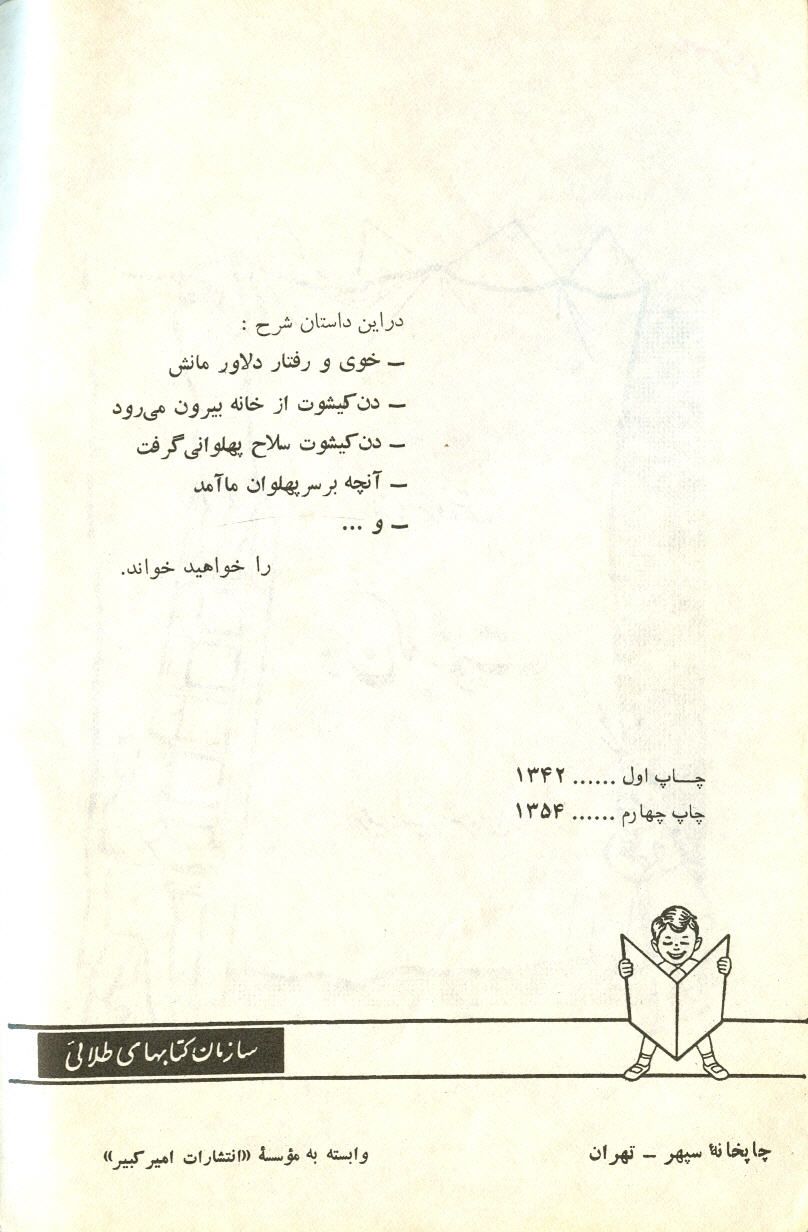 در این داستان شرح :
ـ خوی و رفتار دلاور مانش
ـ دن‌کیشوت از خانه بیرون می‌رود
ـ دن‌کیشوت سلاح پهلوانی گرفت
ـ آنچه بر سر پهلوان ما آمد
ـ و ...
را خواهید خواند.
چـــاپ اول ...... ۱۳۴۲
چاپ چهارم ...... ۱۳۵۴
سازمان کتابهای طلائی
چاپخانهٔ سپهر ـ تهران
وابسته به مؤسسهٔ «انتشارات امیرکبیر»